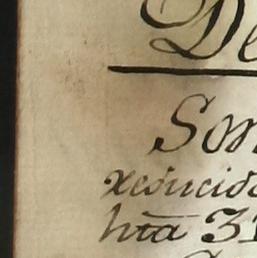 De
Son
reducido
hta 31